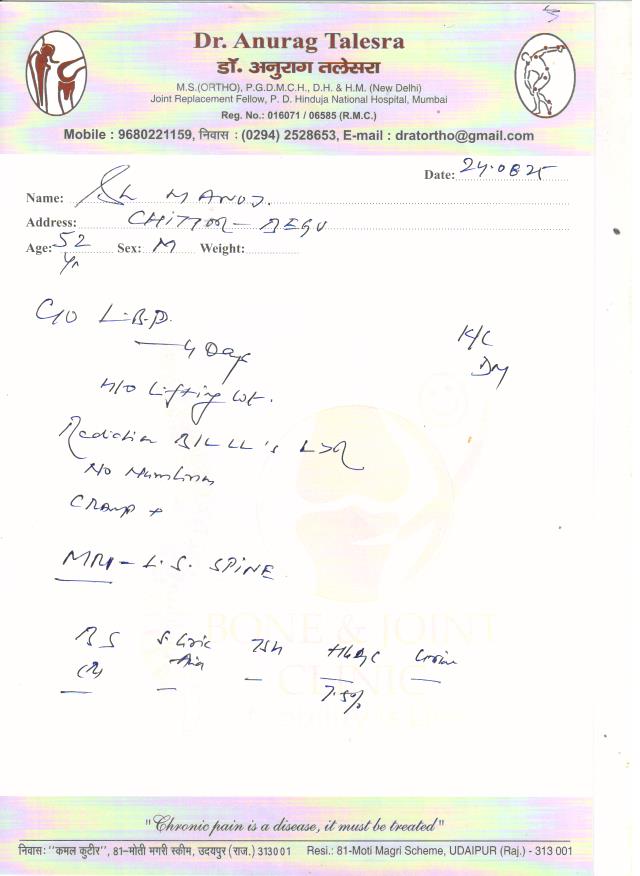 Dr. Anurag Talesra
डॉ. अनुराग तलेसरा
M.S.(ORTHO), P.G.D.M.C.H., D.H. & H.M. (New Delhi)
Joint Replacement Fellow, P. D. Hinduja National Hospital, Mumbai
Reg. No.: 016071 / 06585 (R.M.C.)
Mobile : 9680221159, निवास : (0294) 2528653, E-mail : dratortho@gmail.com
Date: 24.08.25
Name: Sh MANOJ.
Address: CHITTOR - BEGU
Age: 52 Yr Sex: M Weight:
C/O L.B.P.
4 Days
K/C
DM
H/O Lifting wt.
Radiation B/L LL's L>R
No Numbness
Cramp +
MRI - L.S. SPINE
BS S. Uric TSH HbA1C
Acid
7.5%
BONE & JOINT
CLINIC
"Chronic pain is a disease, it must be treated"
निवास: "कमल कुटीर", 81-मोती मगरी स्कीम, उदयपुर (राज.) 313001 Resi.: 81-Moti Magri Scheme, UDAIPUR (Raj.) - 313 001